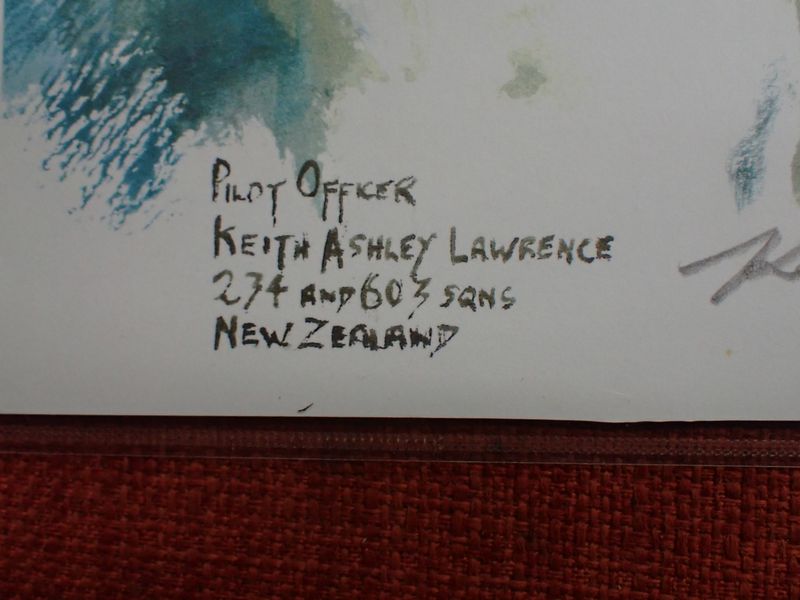 Pilot Officer
Keith Ashley Lawrence
234 and 603 sqns
New Zealand